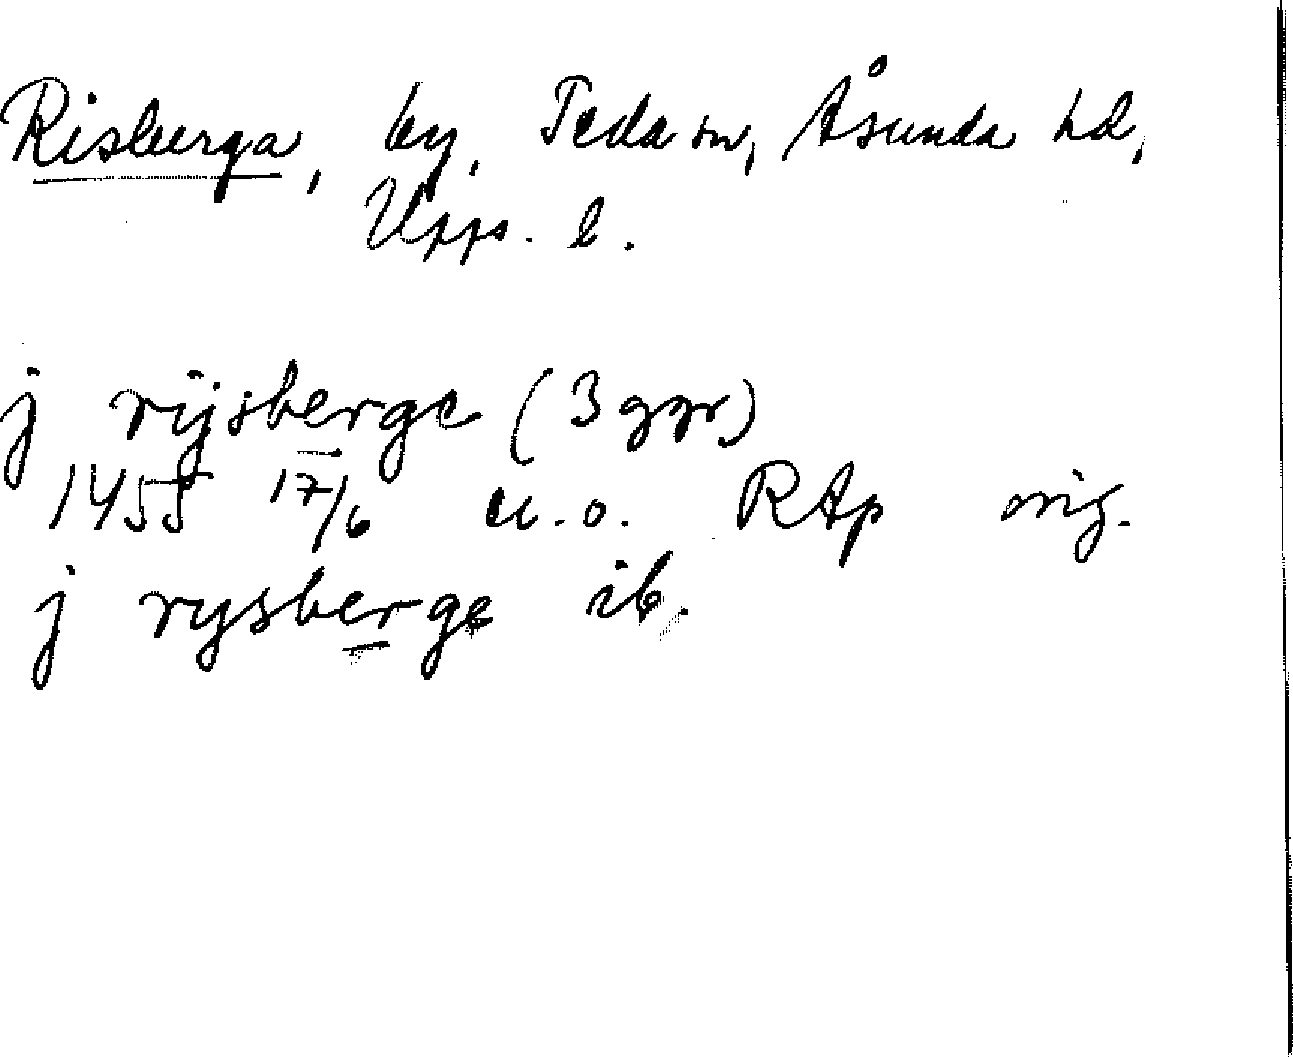 Risberga, by, Teda sn, Åsunda hd,
Upps. l.
j rijsberge (3 ggr)
1455 17/6 u.o. RAp orig.
j rysberge ib.